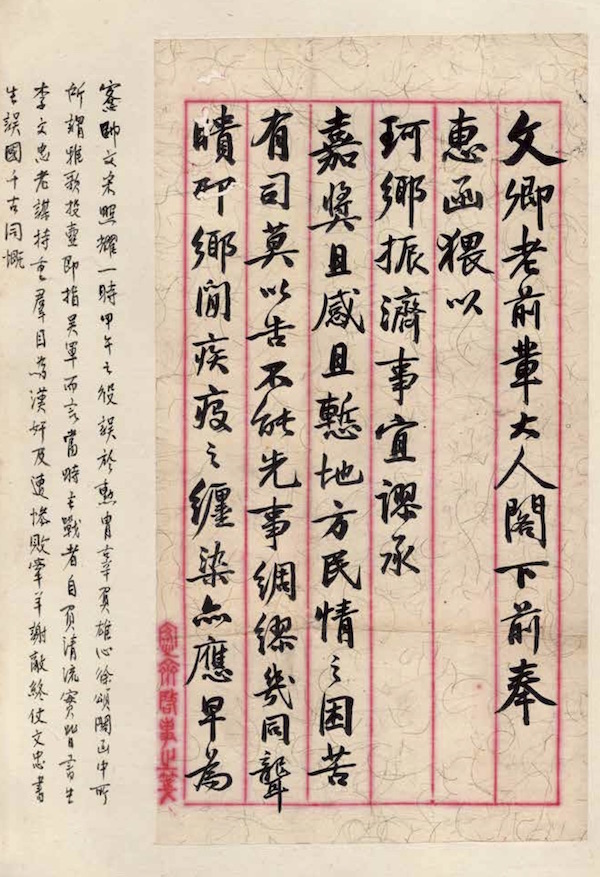 文卿老前輩大人閣下前奉
惠函猥以
珂鄉振濟事宜謬承
嘉獎且感且慙地方民情之困苦
有司莫以告不能先事綢繆幾同聾
聵即鄉間疾疫之纏染亦應早為
愙齋啓事之箋
愙帥文采照耀一時甲午之役誤於勲胄辜負雄心徐頌閣函中所
所謂雅歌投壺即指吳軍而言當時主戰者自負清流實皆書生
李文忠老謀持重羣目為漢奸及遭慘敗牽羊謝敵終仗文忠書
生誤國千古同慨